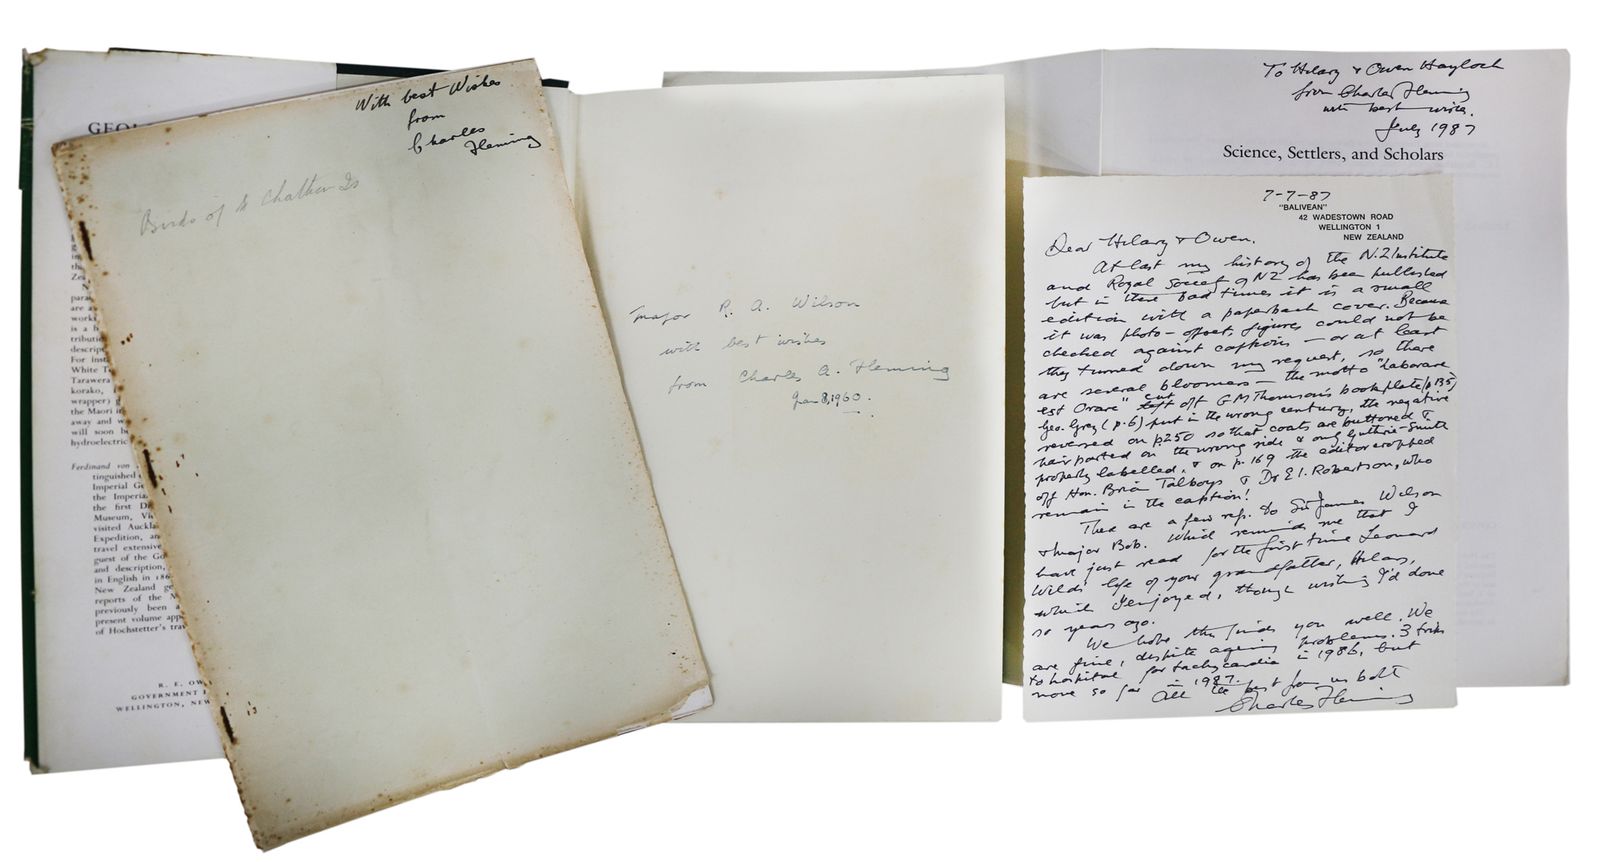 GEOL
gu
in
th
Ze
N
para
are a
worki
is a h
tributi
descrip
For inst
White T
Tarawera
korako,
wrapper) g
the Maori i
away and w
will soon b
hydroelectric
Ferdinand von
tinguished
Imperial Ge
the Imperia
the first D
Museum, Vi
visited Auckla
Expedition, an
travel extensive
guest of the Go
and description,
in English in 186
New Zealand ge
reports of the N
previously been a
present volume app
of Hochstetter's trav
R. E. OW
GOVERNMENT P
WELLINGTON, NEW
With best Wishes
from
Charles
Fleming
Birds of the Chatham Is
Major R. A. Wilson
with best wishes
from Charles A. Fleming
Jan 8, 1960.
To Hilary & Owen Hayloch
from Charles Fleming
with best wishes.
July 1987
Science, Settlers, and Scholars
7-7-87
"BALIVEAN"
42 WADESTOWN ROAD
WELLINGTON 1
NEW ZEALAND
Dear Hilary & Owen.
At last my history of the N.Z Institute
and Royal Society of NZ has been published
but in these bad times it is a small
edition with a paperback cover. Because
it was photo-offset, figures could not be
checked against captions — or at least
they turned down my request, so there
are several bloomers — the motto "Laborare
est Orare" cut off G M Thomson's bookplate (p 135)
Geo. Grey (p. 6) put in the wrong century, the negative
reversed on p 250 so that coats are buttoned &
hair parted on the wrong side & only Guthrie-Smith
properly labelled. & on p. 169 the editor cropped
off Hon. Brian Talboys & Dr E I. Robertson, who
remain in the caption!
There are a few refs. to Sir James Wilson
& Major Bob. Which reminds me that I
have just read for the first time Leonard
Wild's life of your grandfather, Hilary,
which I enjoyed, though wishing I'd done
so years ago.
We hope this finds you well. We
are fine, despite ageing problems. 3 trips
to hospital for tachycardia in 1986, but
none so far in 1987.
All the best from us both
Charles Fleming